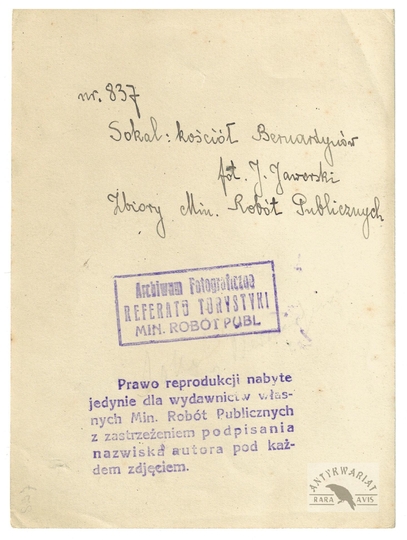 nr. 837
Sokal: kościół Bernardynów
fot. J. Jaworski
Zbiory Min. Robót Publicznych
Archiwum Fotograficzne
REFERATU TURYSTYKI
MIN. ROBÓT PUBL
Prawo reprodukcji nabyte
jedynie dla wydawnictw włas-
nych Min. Robót Publicznych
z zastrzeżeniem podpisania
nazwiska autora pod każ-
dem zdjęciem.
ANTYKWARIAT
RARA AVIS